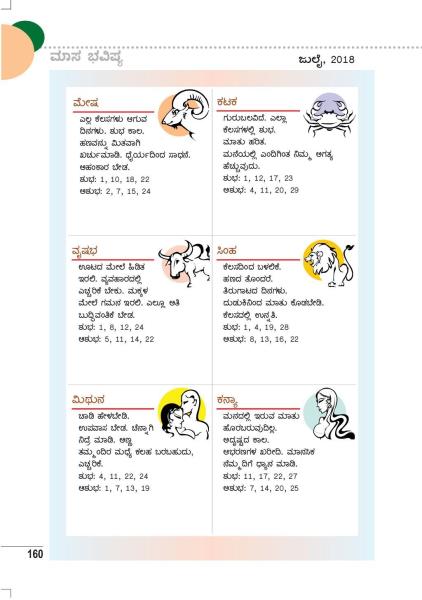 ಮಾಸ ಭವಿಷ್ಯ
ಜುಲೈ, 2018
ಮೇಷ
ಎಲ್ಲ ಕೆಲಸಗಳು ಆಗುವ
ದಿನಗಳು. ಶುಭ ಕಾಲ.
ಹಣವನ್ನು ಮಿತವಾಗಿ
ಖರ್ಚುಮಾಡಿ. ಧೈರ್ಯದಿಂದ ಸಾಧನೆ.
ಆಹಂಕಾರ ಬೇಡ.
ಶುಭ: 1, 10, 18, 22
ಆಶುಭ: 2, 7, 15, 24
ಕಟಕ
ಗುರುಬಲವಿದೆ. ಎಲ್ಲಾ
ಕೆಲಸಗಳಲ್ಲಿ ಶುಭ.
ಮಾತು ಹರಿತ.
ಮನೆಯಲ್ಲಿ ಎಂದಿಗಿಂತ ನಿಮ್ಮ ಆಗತ್ಯ
ಹೆಚ್ಚುವುದು.
ಶುಭ: 1, 12, 17, 23
ಆಶುಭ: 4, 11, 20, 29
ವೃಷಭ
ಊಟದ ಮೇಲೆ ಹಿಡಿತ
ಇರಲಿ. ವ್ಯವಹಾರದಲ್ಲಿ
ಎಚ್ಚರಿಕೆ ಬೇಕು. ಮಕ್ಕಳ
ಮೇಲೆ ಗಮನ ಇರಲಿ. ಎಲ್ಲೂ ಅತಿ
ಬುದ್ಧಿವಂತಿಕೆ ಬೇಡ.
ಶುಭ: 1, 8, 12, 24
ಆಶುಭ: 5, 11, 14, 22
ಸಿಂಹ
ಕೆಲಸದಿಂದ ಬಳಲಿಕೆ.
ಹಣದ ತೊಂದರೆ.
ತಿರುಗಾಟದ ದಿನಗಳು.
ದುಡುಕಿನಿಂದ ಮಾತು ಕೊಡಬೇಡಿ.
ಕೆಲಸದಲ್ಲಿ ಉನ್ನತಿ.
ಶುಭ: 1, 4, 19, 28
ಆಶುಭ: 8, 13, 16, 22
ಮಿಥುನ
ಚಾಡಿ ಹೇಳಬೇಡಿ.
ಉಪವಾಸ ಬೇಡ. ಚೆನ್ನಾಗಿ
ನಿದ್ರೆ ಮಾಡಿ. ಅಣ್ಣ
ತಮ್ಮಂದಿರ ಮಧ್ಯೆ ಕಲಹ ಬರಬಹುದು,
ಎಚ್ಚರಿಕೆ.
ಶುಭ: 4, 11, 22, 24
ಆಶುಭ: 1, 7, 13, 19
ಕನ್ಯಾ
ಮನದಲ್ಲಿ ಇರುವ ಮಾತು
ಹೊರಬರುವುದಿಲ್ಲ.
ಅದೃಷ್ಟದ ಕಾಲ.
ಆಭರಣಗಳ ಖರೀದಿ. ಮಾನಸಿಕ
ನೆಮ್ಮದಿಗೆ ಧ್ಯಾನ ಮಾಡಿ.
ಶುಭ: 11, 17, 22, 27
ಆಶುಭ: 7, 14, 20, 25
160